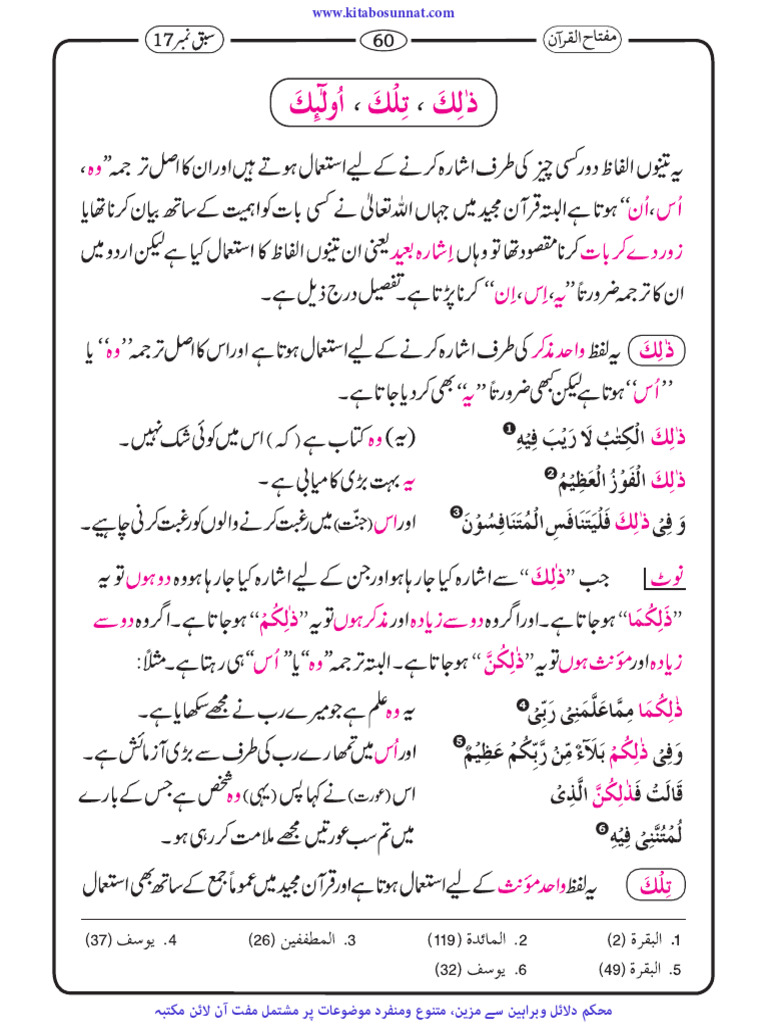 www.kitabosunnat.com
مفتاح القرآن 60 سبق نمبر 17
ذٰلِكَ ، تِلْكَ ، اُولٰٓئِكَ
یہ تینوں الفاظ دور کسی چیز کی طرف اشارہ کرنے کے لیے استعمال ہوتے ہیں اور ان کا اصل ترجمہ ’’وہ ،
اُس، اُن‘‘ ہوتا ہے البتہ قرآن مجید میں جہاں اللہ تعالیٰ نے کسی بات کو اہمیت کے ساتھ بیان کرنا تھا یا
زور دے کر بات کرنا مقصود تھا تو وہاں اِشارہ بعید یعنی ان تینوں الفاظ کا استعمال کیا ہے لیکن اردو میں
ان کا ترجمہ ضرورتاً ’’یہ، اِس، اِن‘‘ کرنا پڑتا ہے۔ تفصیل درج ذیل ہے۔
ذٰلِكَ یہ لفظ واحد مذکر کی طرف اشارہ کرنے کے لیے استعمال ہوتا ہے اور اس کا اصل ترجمہ ’’وہ‘‘ یا
’’اُس‘‘ ہوتا ہے لیکن کبھی ضرورتاً ’’یہ‘‘ بھی کر دیا جاتا ہے۔
ذٰلِكَ الْكِتٰبُ لَا رَيْبَ فِيْهِ❶ (یہ) وہ کتاب ہے (کہ) اس میں کوئی شک نہیں۔
ذٰلِكَ الْفَوْزُ الْعَظِيْمُ❷ یہ بہت بڑی کامیابی ہے ۔
وَ فِيْ ذٰلِكَ فَلْيَتَنَافَسِ الْمُتَنَافِسُوْنَ❸ اور اس (جنّت) میں رغبت کرنے والوں کو رغبت کرنی چاہیے۔
نوٹ جب ’’ذٰلِكَ‘‘ سے اشارہ کیا جا رہا ہو اور جن کے لیے اشارہ کیا جا رہا ہو وہ دو ہوں تو یہ
’’ذٰلِكُمَا‘‘ ہو جاتا ہے۔ اور اگر وہ دو سے زیادہ اور مذکر ہوں تو یہ ’’ذٰلِكُمْ‘‘ ہو جاتا ہے۔ اگر وہ دو سے
زیادہ اور مؤنث ہوں تو یہ ’’ذٰلِكُنَّ‘‘ ہو جاتا ہے۔ البتہ ترجمہ ’’وہ‘‘ یا ’’اُس‘‘ ہی رہتا ہے۔ مثلاً:
ذٰلِكُمَا مِمَّا عَلَّمَنِيْ رَبِّيْ❹ یہ وہ علم ہے جو میرے رب نے مجھے سکھایا ہے۔
وَفِيْ ذٰلِكُمْ بَلَآءٌ مِّنْ رَّبِّكُمْ عَظِيْمٌ❺ اور اُس میں تمھارے رب کی طرف سے بڑی آزمائش ہے۔
قَالَتْ فَذٰلِكُنَّ الَّذِيْ اس (عورت) نے کہا پس (یہی) وہ شخص ہے جس کے بارے
لُمْتُنَّنِيْ فِيْهِ❻ میں تم سب عورتیں مجھے ملامت کر رہی ہو۔
تِلْكَ یہ لفظ واحد مؤنث کے لیے استعمال ہوتا ہے اور قرآن مجید میں عموماً جمع کے ساتھ بھی استعمال
1. البقرة (2) 2. المائدة (119) 3. المطففين (26) 4. يوسف (37)
5. البقرة (49) 6. يوسف (32)
محکم دلائل وبراہین سے مزین، متنوع ومنفرد موضوعات پر مشتمل مفت آن لائن مکتبہ